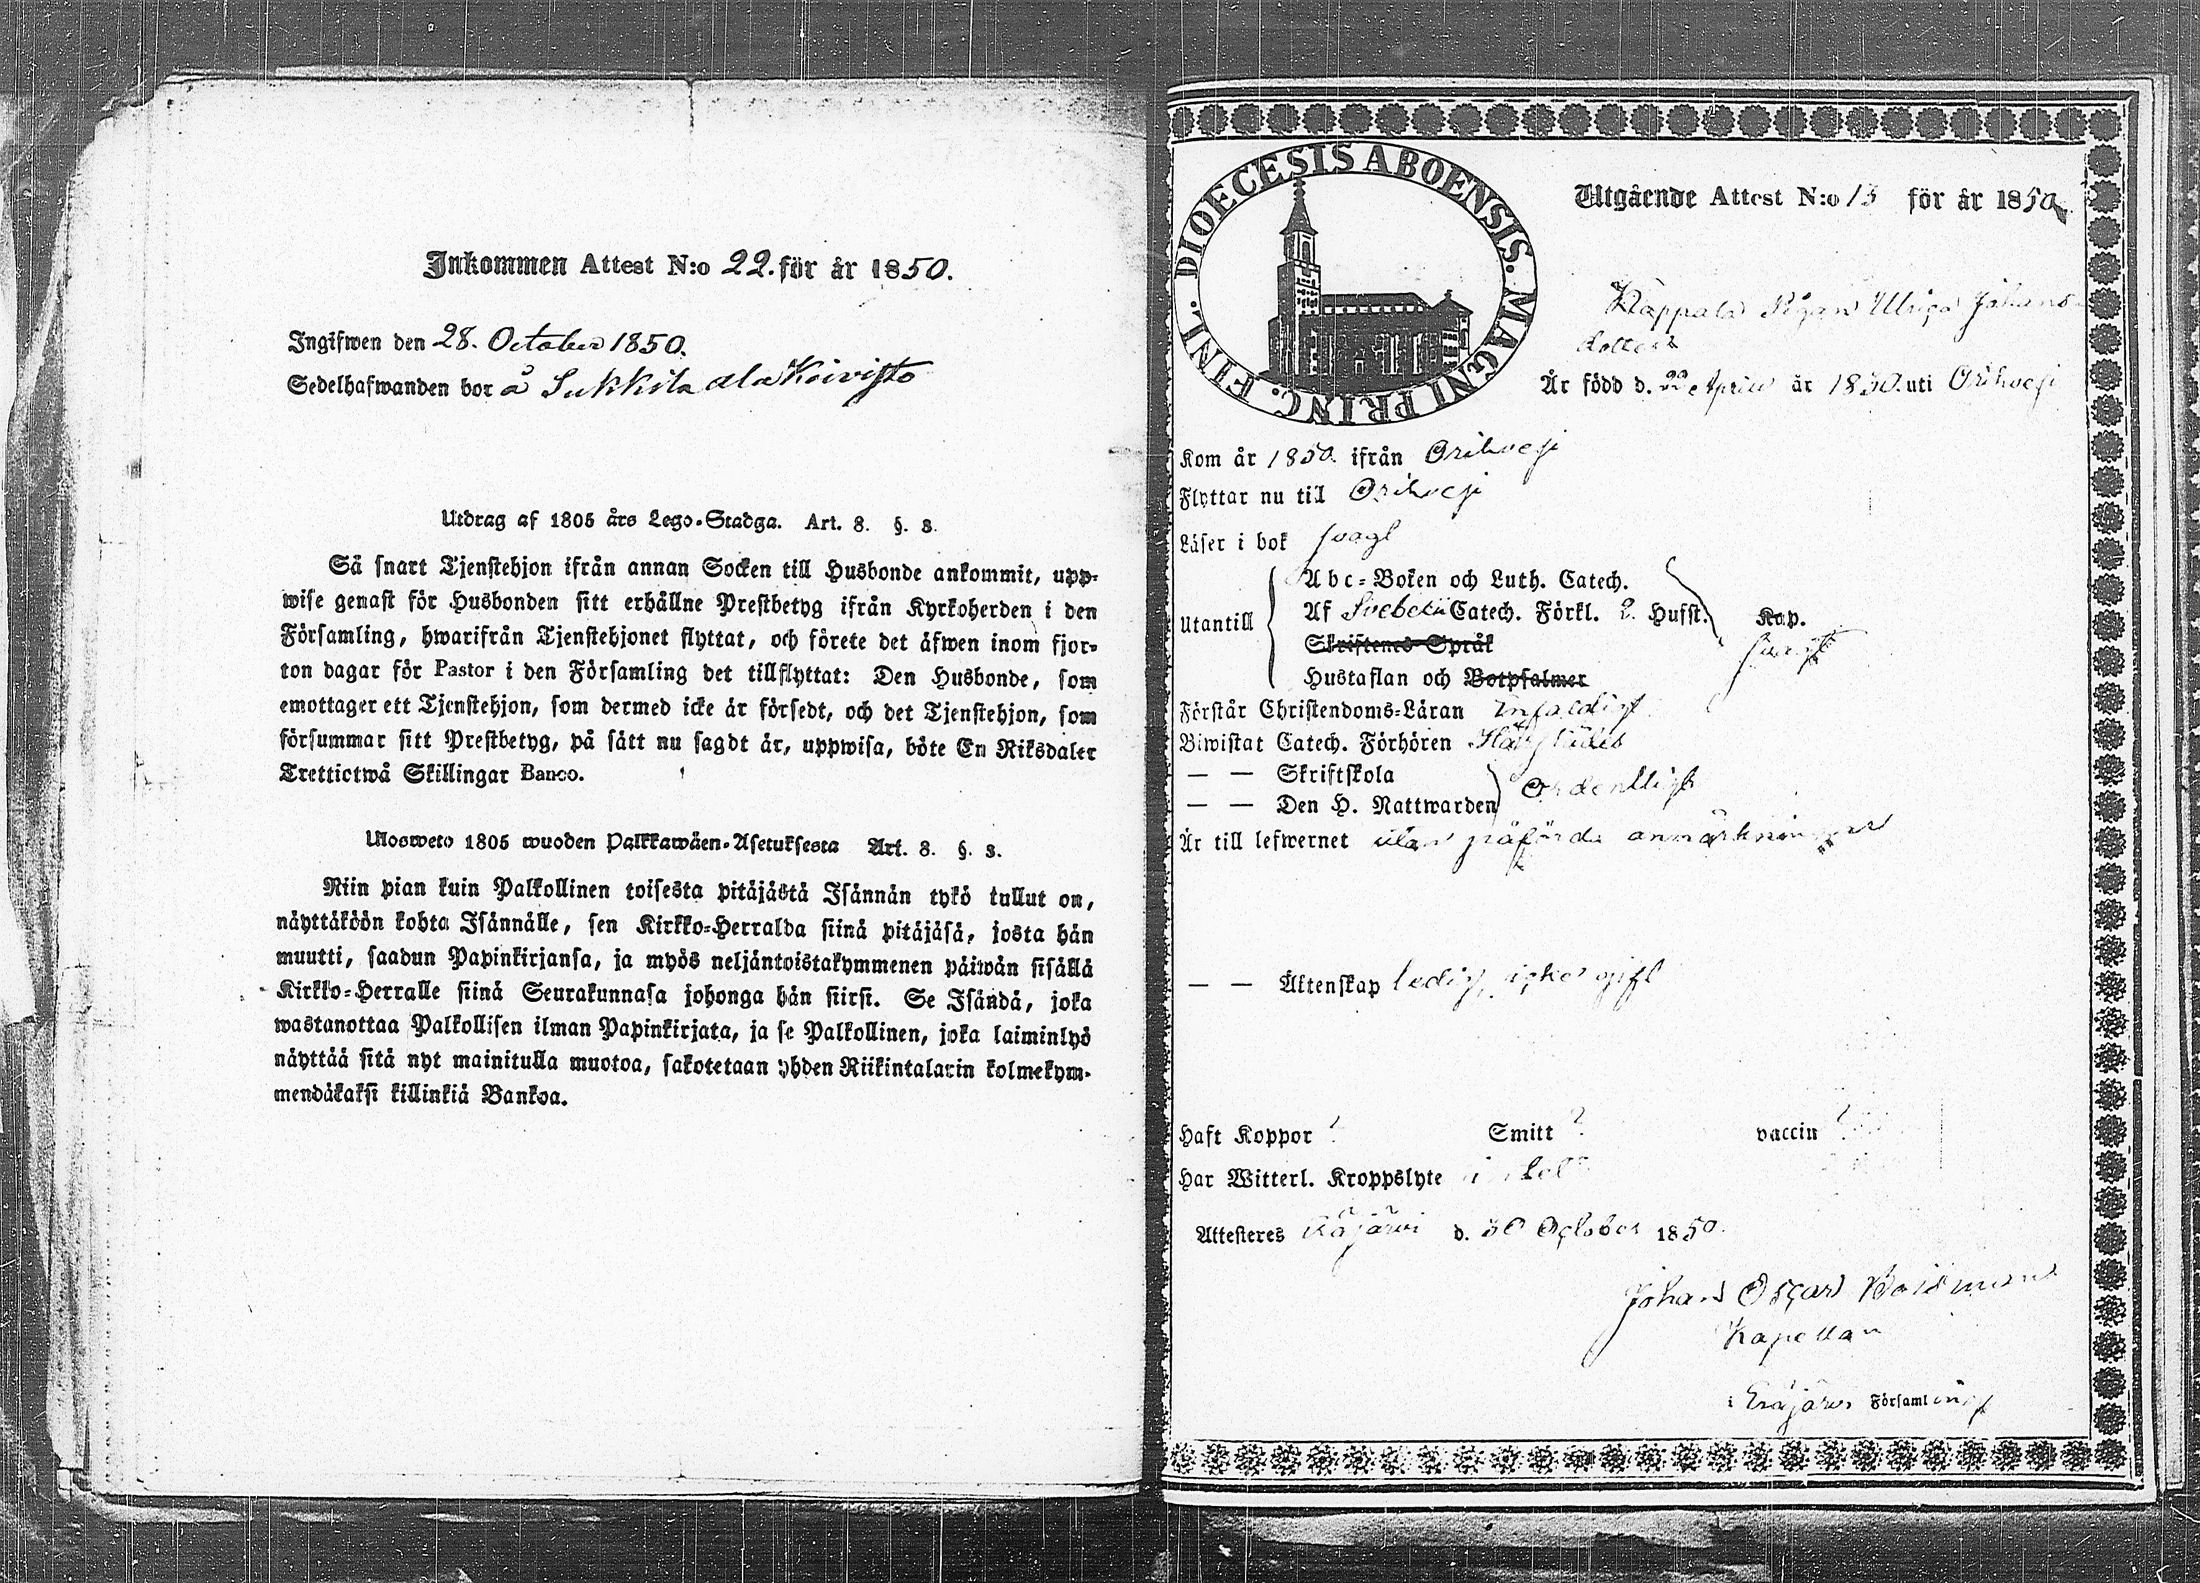 Inkommen Attest N:o 22. för år 1850.
Ingifwen den 28. October 1850.
Sedelhafwanden bor å Sukkila ala Koivisto
Utdrag af 1805 års Lego-Stadga. Art. 8. §. 3.
Så snart Tjenstehjon ifrån annan Socken till Husbonde ankommit, upp-
wise genast för Husbonden sitt erhållne Prestbetyg ifrån Kyrkoherden i den
Församling, hwarifrån Tjenstehjonet flyttat, och förete det äfwen inom fjor-
ton dagar för Pastor i den Församling det tillflyttat: Den Husbonde, som
emottager ett Tjenstehjon, som dermed icke är försedt, och det Tjenstehjon, som
försummar sitt Prestbetyg, på sätt nu sagdt är, uppwisa, böte En Riksdaler
Trettiotwå Skillingar Banco.
Ulosweto 1805 wuoden Palkkawäen-Asetuksesta Art. 8. §. 3.
Niin pian kuin Palkollinen toisesta pitäjästä Isännän tykö tullut on,
näyttäköön kohta Isännälle, sen Kirkko-Herralda siinä pitäjäsä, josta hän
muutti, saadun Papinkirjansa, ja myös neljäntoistakymmenen päiwän sisällä
Kirkko-Herralle siinä Seurakunnasa johonga hän siirsi. Se Isändä, joka
wastanottaa Palkollisen ilman Papinkirjata, ja se Palkollinen, joka laiminlyö
näyttää sitä nyt mainitulla muotoa, sakotetaan yhden Riikintalarin kolmekym-
mendäkaksi killinkiä Bankoa.
DIOECESIS ABOENSIS. MAGNI PRINC. FINL.
Utgående Attest N:o 13 för år 1850
Pigan Ulrica Johans
dotter
Är född d. 22 April år 1830. uti Orihvesi
Kom år 1850. ifrån Orihvesi
Flyttar nu till Orihvesi
Läser i bok svagt
Utantill
Abc-Boken och Luth. Catech.
Af Svebelii Catech. Förkl. 2. Hufst. Kap.
Skriftenes Språk svagt
Hustaflan och Botpsalmer
Förstår Christendoms-Läran enfaldigt
Biwistat Catech. Förhören
— — Skriftskola
— — Den H. Nattwarden ordentligt
Är till lefwernet utan påförda anmärkningar
— — Äktenskap ledig, icke gift
Haft Koppor ? Smitt ? vaccin ?
Har Witterl. Kroppslyte
Attesteres Eräjärvi d. 30 October 1850.
Johan Oscar
Kapellan
i Eräjärvi Församling